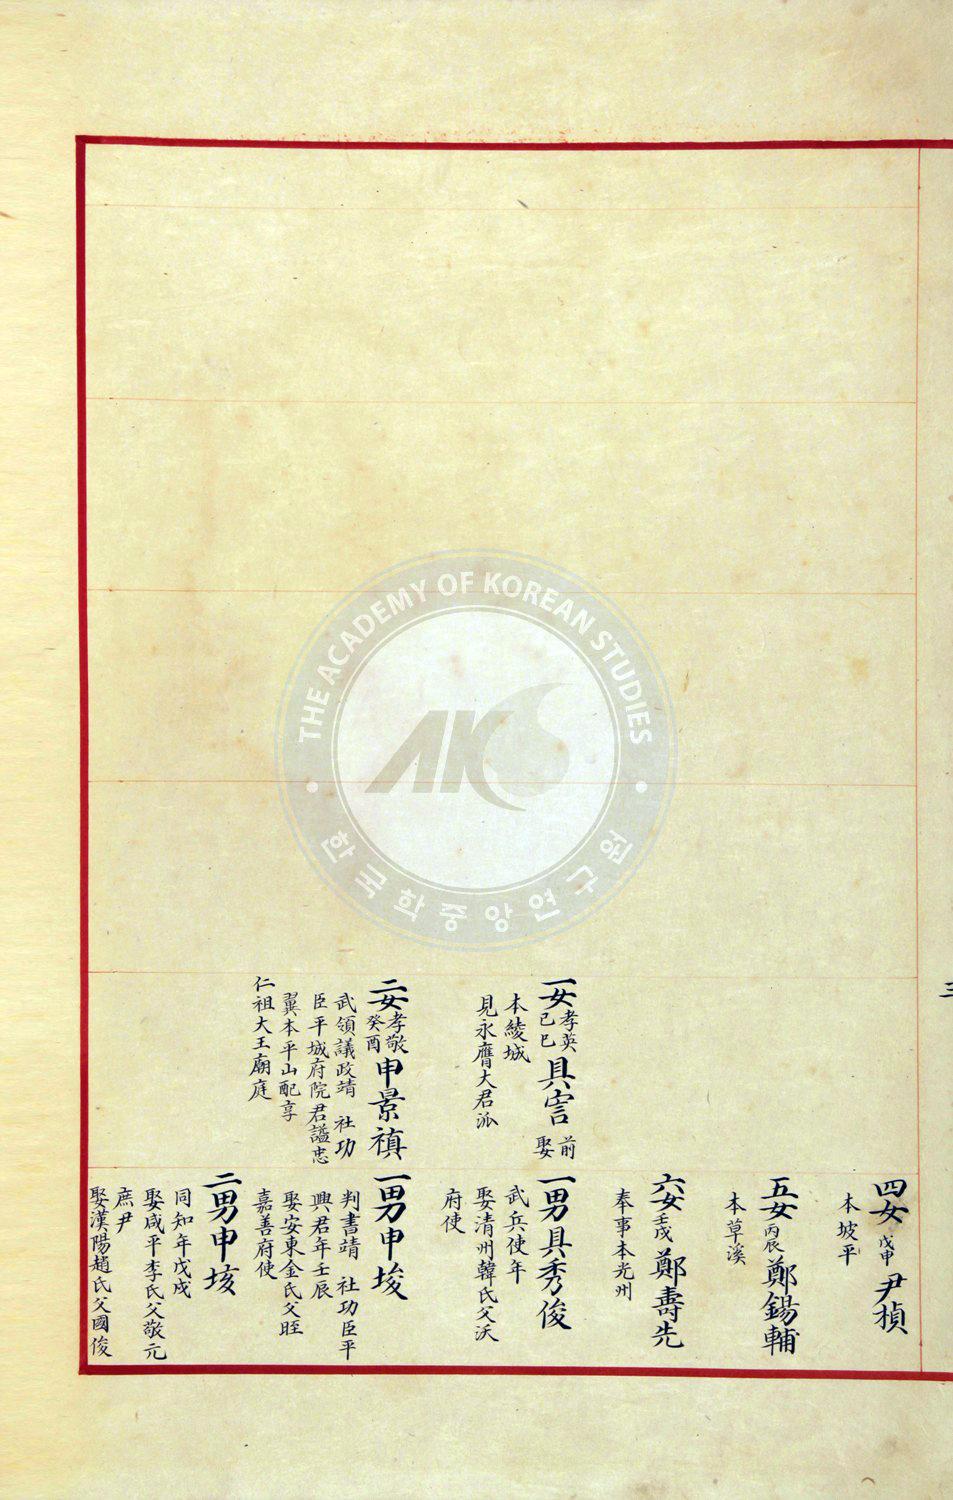 三
一女孝英己巳具
前娶
本綾城
見永膺大君派
二女孝敬癸酉申景禛
武領議政靖 社功
臣平城府院君諡忠
翼本平山配享
仁祖大王廟庭
四女戊申尹楨
本坡平
五女丙辰鄭錫輔
本草溪
六女壬戌鄭壽先
奉事本光州
一男具秀俊
武兵使年
娶清州韓氏父沃
府使
一男申埈
判書靖 社功臣平
興君年壬辰
娶安東金氏父眰
嘉善府使
二男申垓
同知年戊戌
娶咸平李氏父敬元
庶尹
娶漢陽趙氏父國俊
THE ACADEMY OF KOREAN STUDIES
AKS
한국학중앙연구원